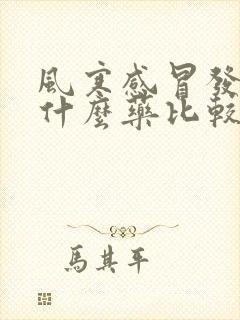 風寒感冒發
什麼藥比較
馬其平